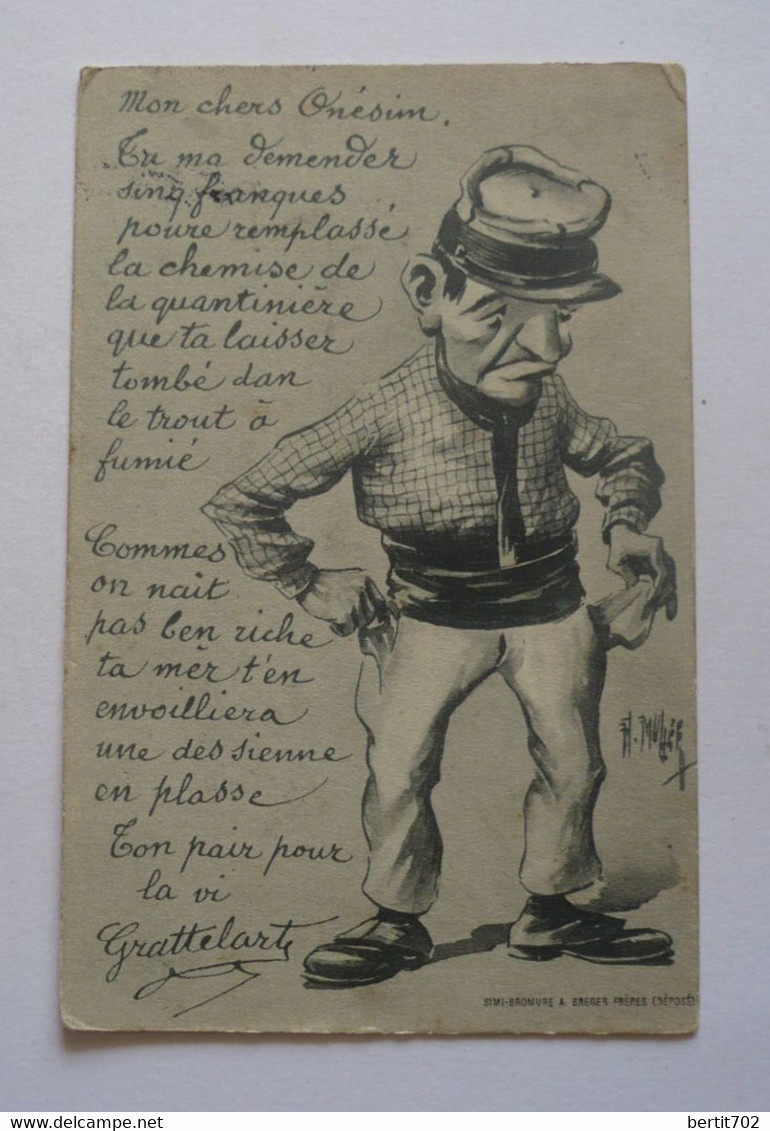 Mon chers Onésim.
Tu ma demender
sinq franques
poure remplassé
la chemise de
la quantinière
que ta laisser
tombé dan
le trout à
fumié
Commes
on nait
pas ben riche
ta mèr t'en
envoilliera
une des sienne
en plasse
Ton pair pour
la vi
Grattelart
H. MULLER
SIMI-BROMURE A. BREGER FRÈRES (DÉPOSÉ)
delcampe.net
bertit702